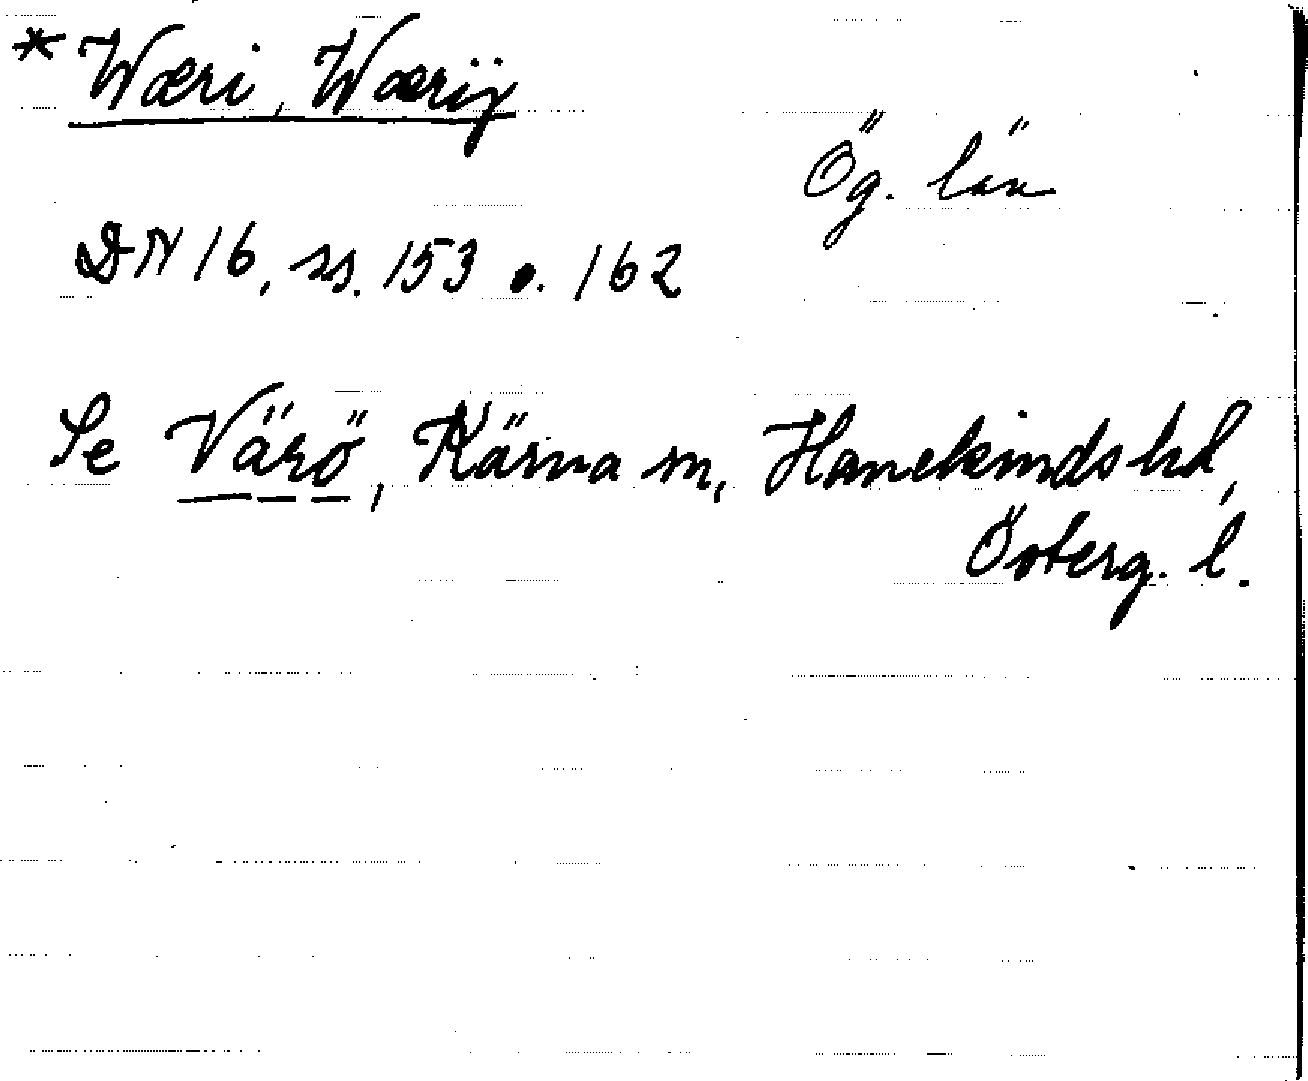 * Wæri, Wærij
Ög. län
DN 16, ss. 153 o. 162
Se Värö, Kärna sn, Hanekinds hd,
Österg. l.